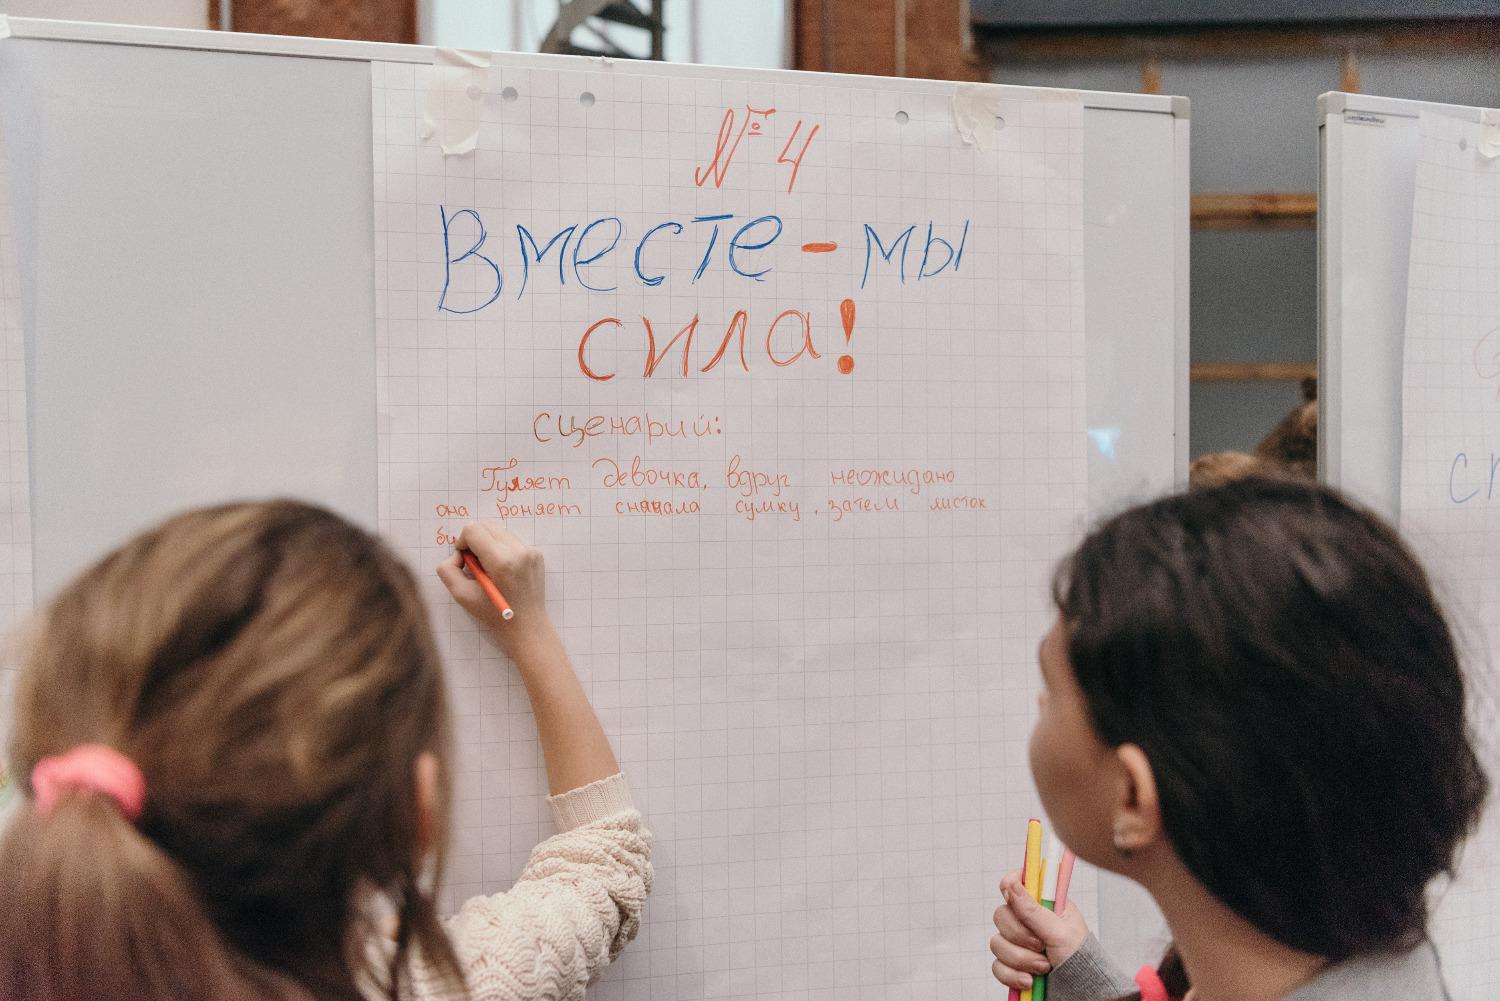 № 4
Вместе - мы
сила!
сценарий:
Гуляет девочка, вдруг неожидано
она роняет сначала сумку, затем листок